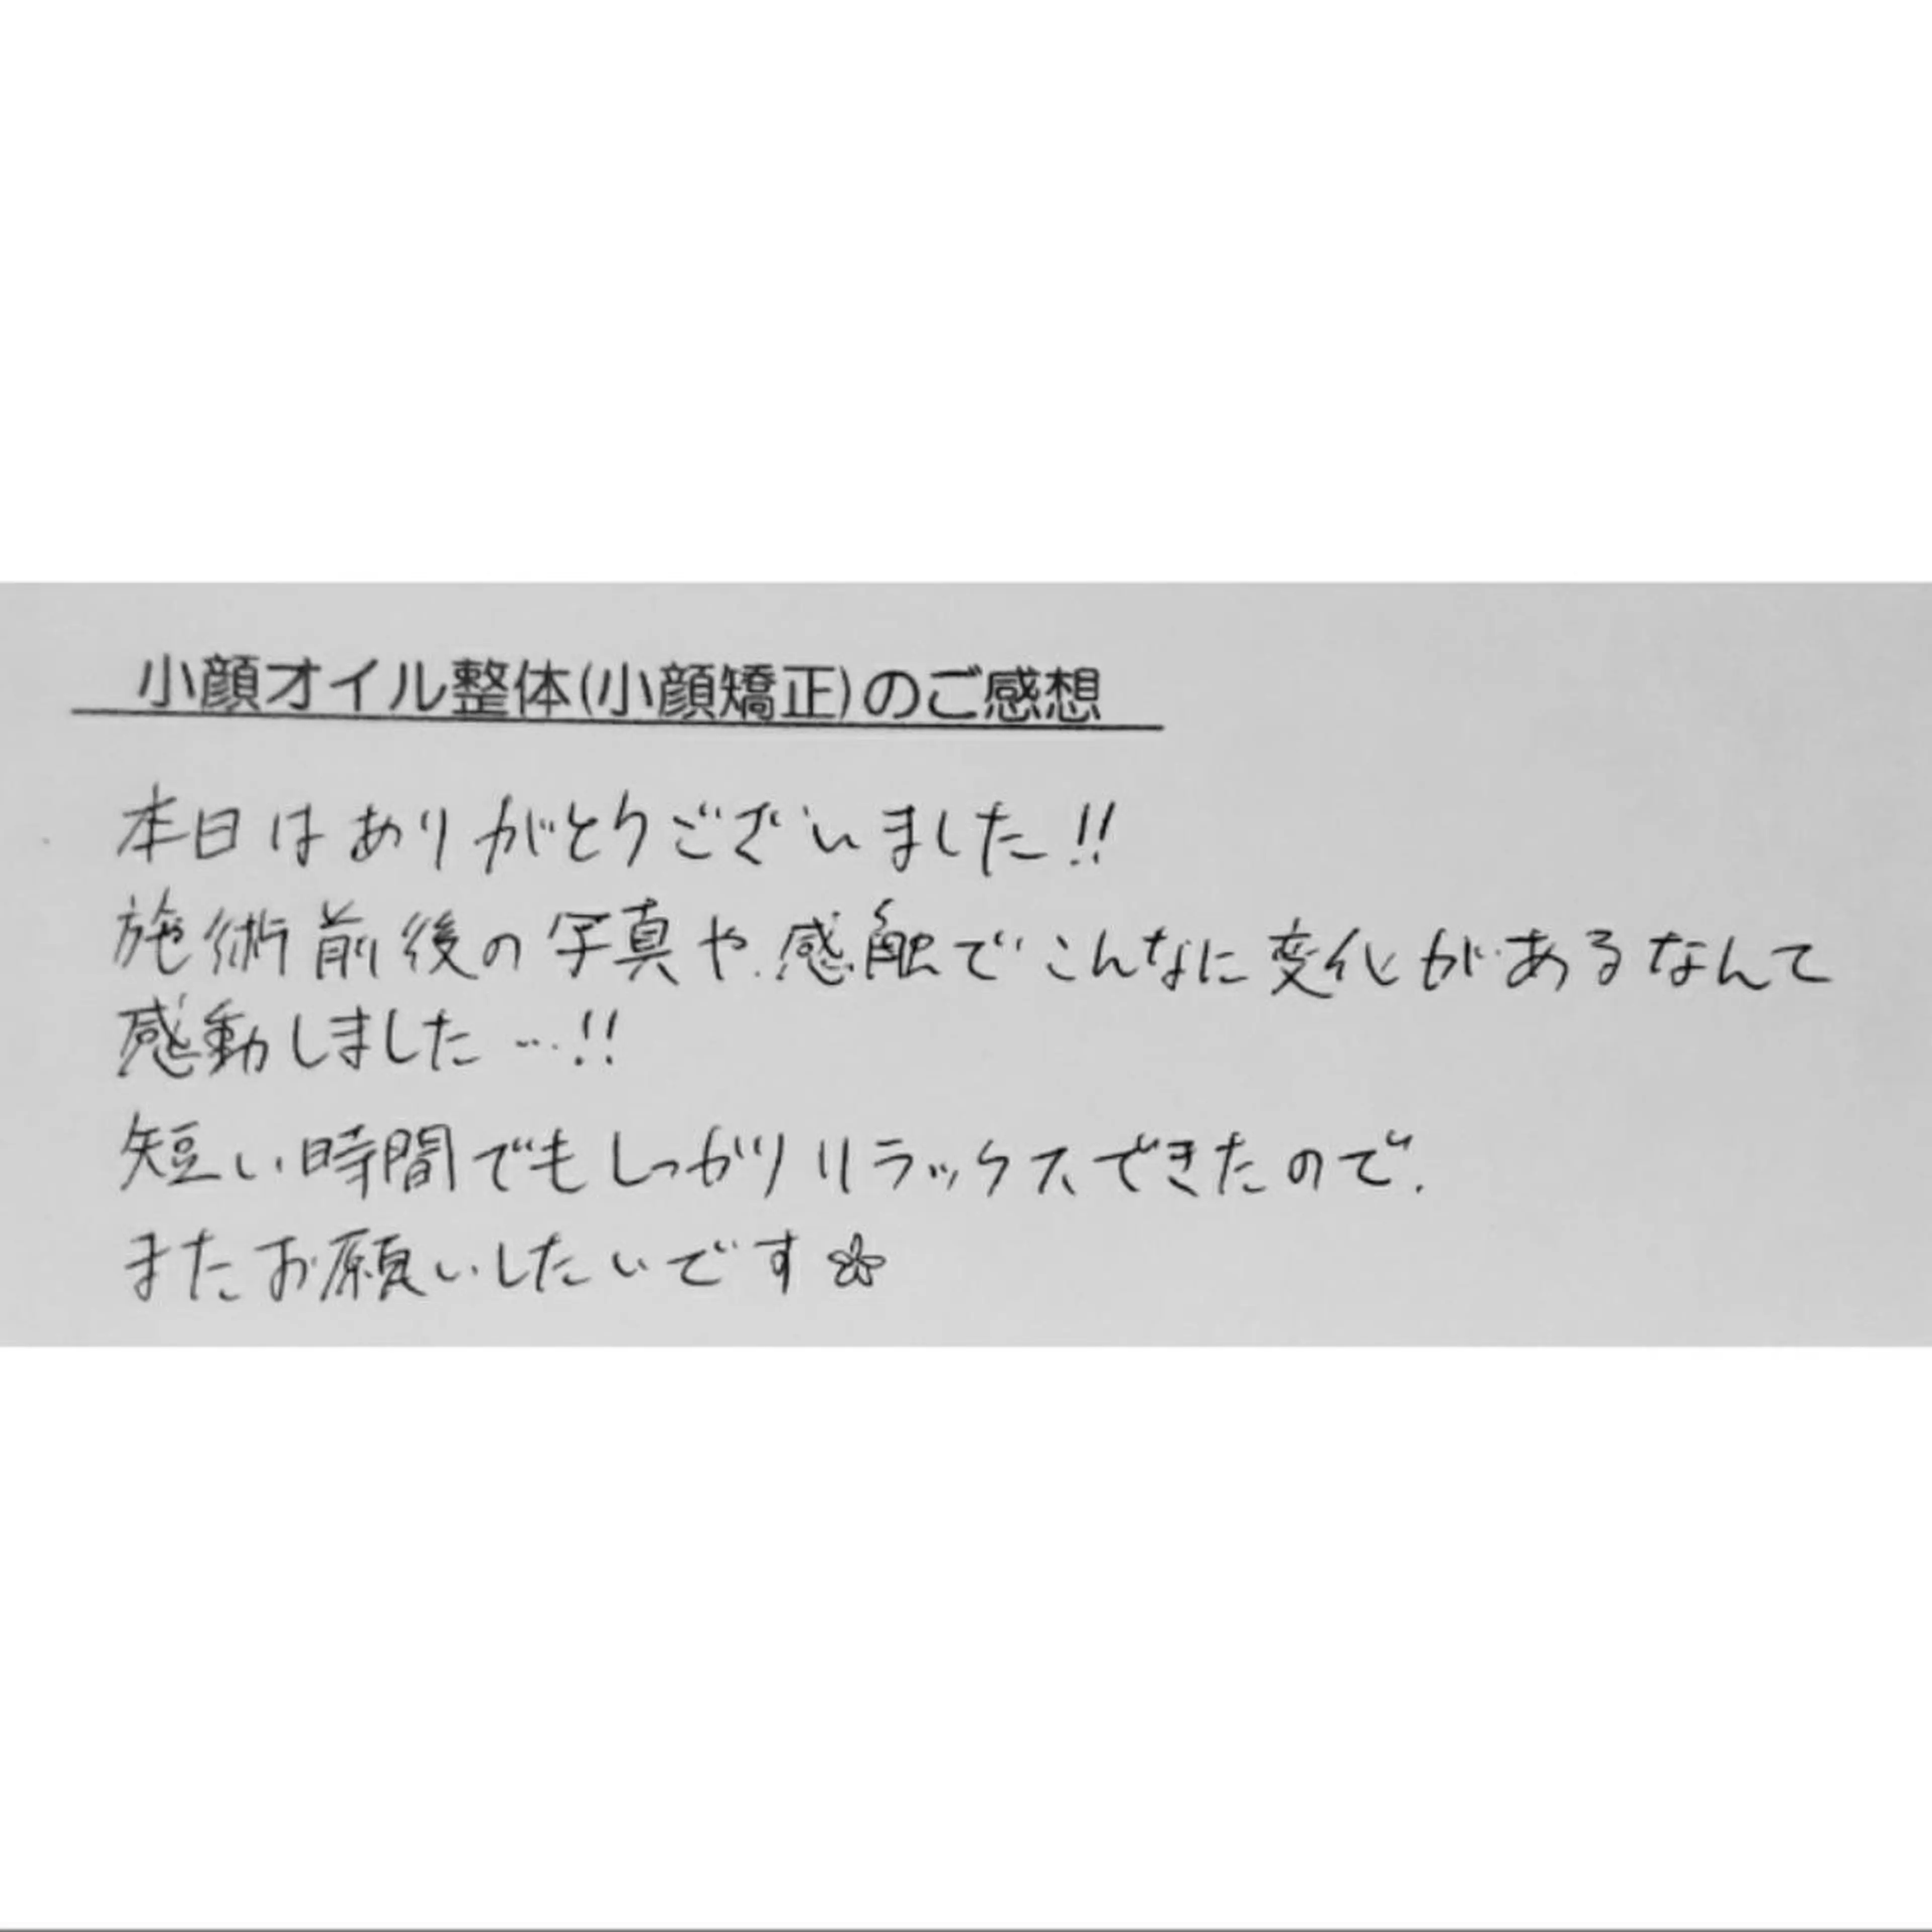 小顔オイル整体(小顔矯正)のご感想
本日はありがとうございました!!
施術前後の写真や感触でこんなに変化があるなんて
感動しました…!!
短い時間でもしっかりリラックスできたので、
またお願いしたいです